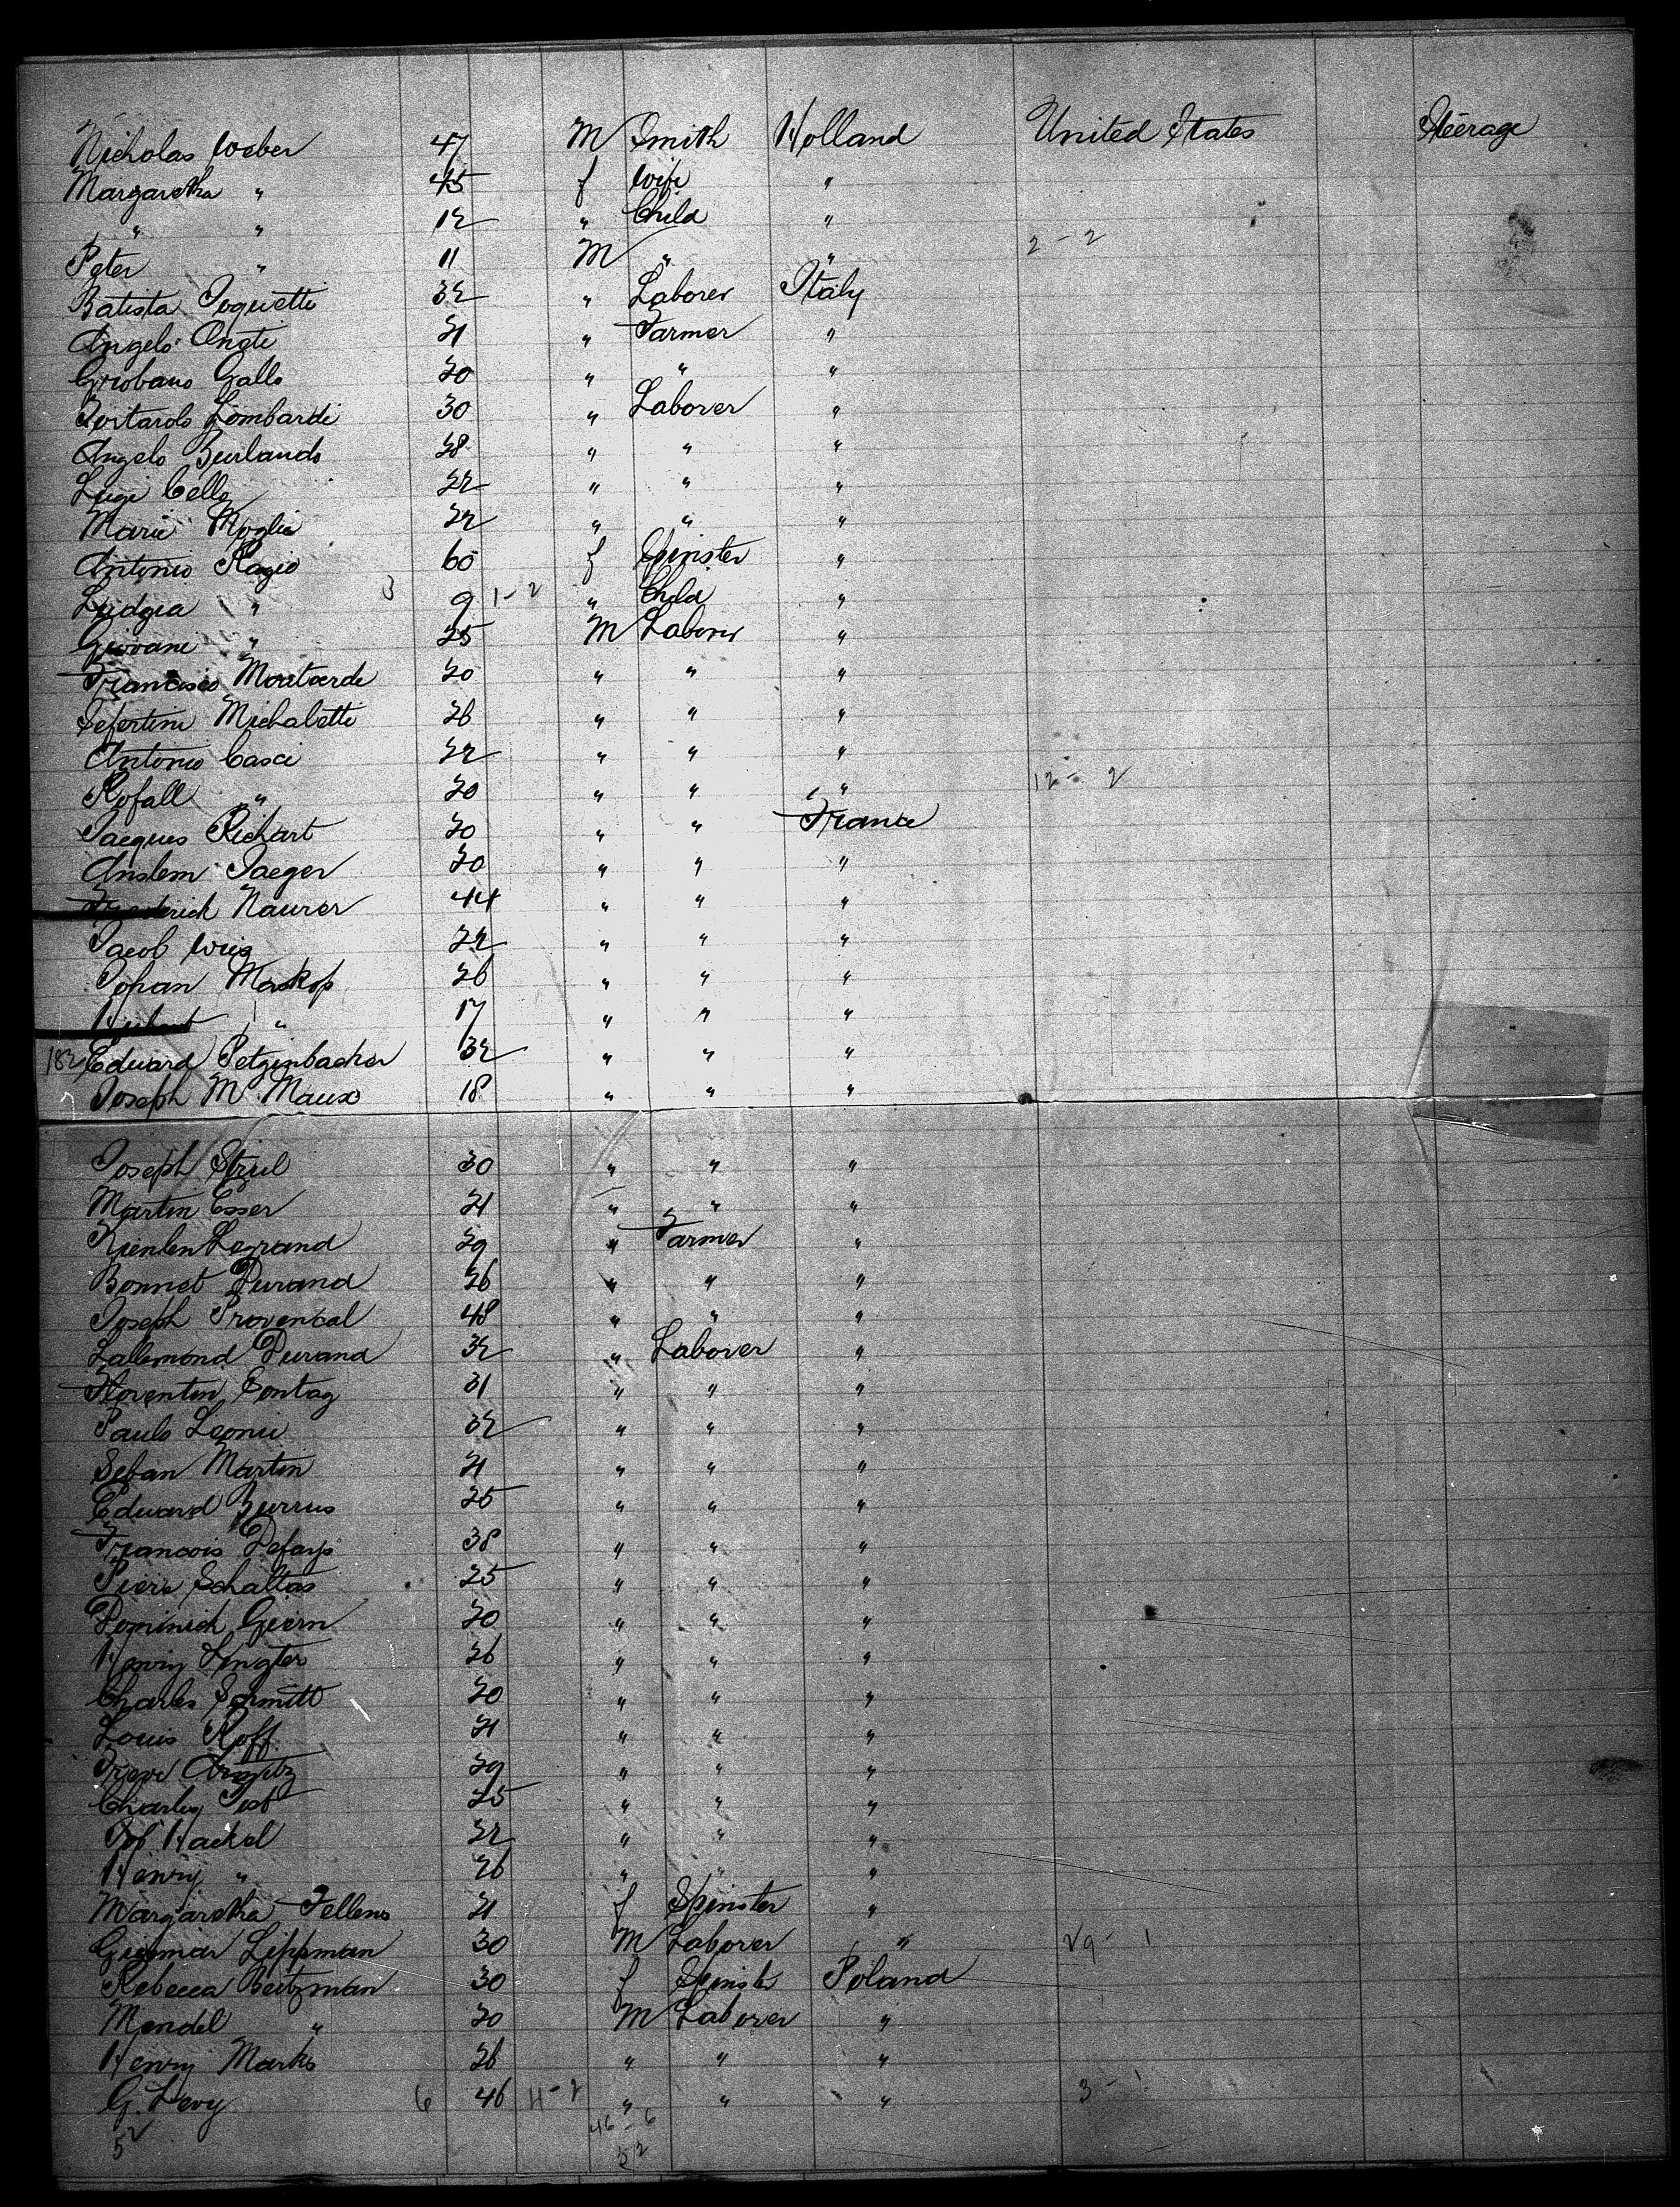 Nicholas Weber 47 M Smith Holland United States Steerage
Margaretha " 45 f Wife "
" " 12 " Child "
Peter " 11 M " " 2 - 2
Batista Foquetti 32 " Laborer Italy
Angelo Onati 21 " Farmer "
Grobano Gallo 20 " " "
Lombardi 30 " Laborer "
Angelo Burlando 28 " " "
Luigi Cello 22 " " "
Marie Moglia 22 " " "
Antonio Ragio 60 f Spinster "
Luidgia " 3 9 1-2 " Child "
Giovane " 25 M Laborer "
Francisco Montverde 20 " " "
Michaletti 26 " " "
Antonio Casci 22 " " "
Rofall " 20 " " " 12 - 2
Jacques Richart 20 " " France
Anslem Jaeger 20 " " "
Frederick Naurer 44 " " "
Jacob Weig 22 " " "
Johan Maskop 26 " " "
" 17 " " "
182 Edward Petzinbacker 32 " " "
Joseph M Maux 18 " " "
Joseph Strul 30 " " "
Martin Esser 21 " " "
Kienlen Legrand 29 " Farmer "
Bonnet Durand 26 " " "
Joseph Provencal 48 " " "
Lallemond Durand 32 " Laborer "
Florentin Contag 31 " " "
Paulo Leonie 32 " " "
Seban Martin 21 " " "
Edward Burrus 25 " " "
Francois Defays 38 " " "
Piere Schaltas 25 " " "
Dominick Giern 20 " " "
Henry Lingter 26 " " "
Charles Schmitt 20 " " "
Louis Roff 21 " " "
29 " " "
Charley 25 " " "
Hackel 22 " " "
Henry " 26 " " "
Margaretha Fellens 21 f Spinster "
Lippman 30 M Laborer " 29 - 1
Rebecca Beitzman 30 f Spinst Poland
Mendel " 20 M Laborer "
Henry Marks 26 " " "
G. Levy 6 46 4-2 " " " 3 - 1
52 46 - 6
52